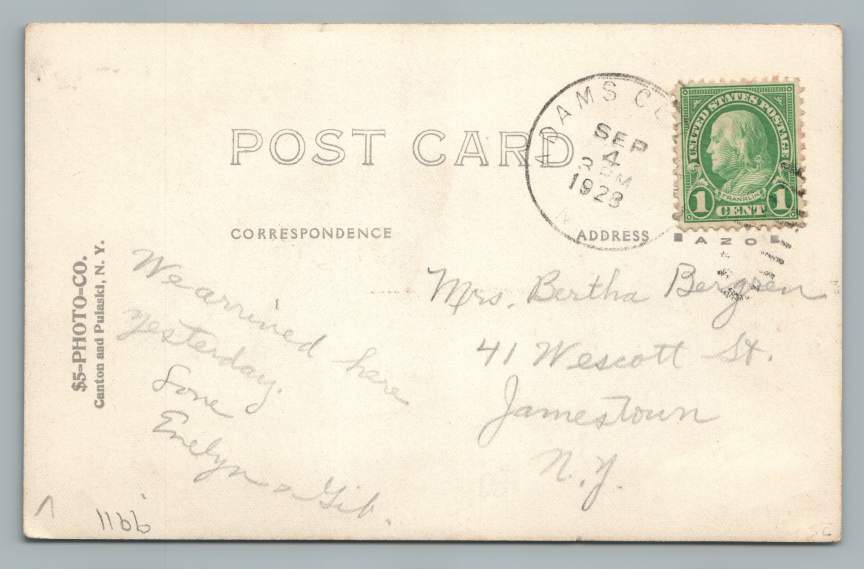 POST CARD
ADAMS C
SEP
4
3 PM
1928
N
UNITED STATES POSTAGE
FRANKLIN
1 CENT 1
CORRESPONDENCE
ADDRESS
AZO
$5-PHOTO-CO.
Canton and Pulaski, N. Y.
We arrived here
yesterday.
Love
Evelyn & Gib.
Mrs. Bertha Bergren
41 Wescott St.
Jamestown
N.Y.
1166